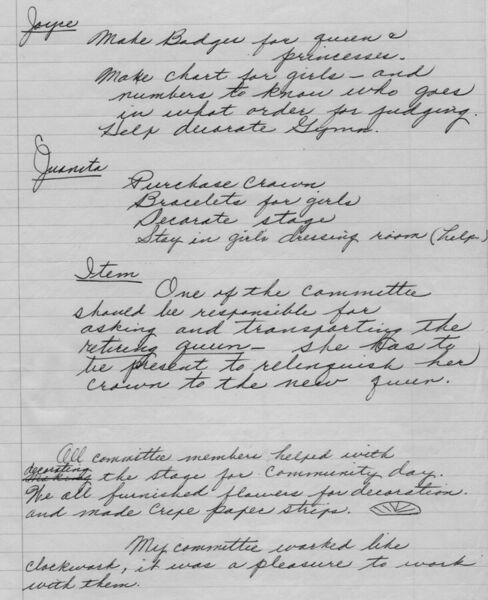 Joyce
Make Badges for queen &
princesses.
Make chart for girls – and
numbers to know who goes
in what order for judging.
Help decorate Gymn.
Juanita
Purchase Crown
Bracelets for girls
Decorate stage
Stay in girls dressing room (help)
Item
One of the committee
should be responsible for
asking and transporting the
retiring queen – she has to
be present to relinquish her
crown to the new queen.
All committee members helped with
decorating
the stage for Community day.
We all furnished flowers for decoration.
and made crepe paper strips.
My committee worked like
clockwork, it was a pleasure to work
with them.